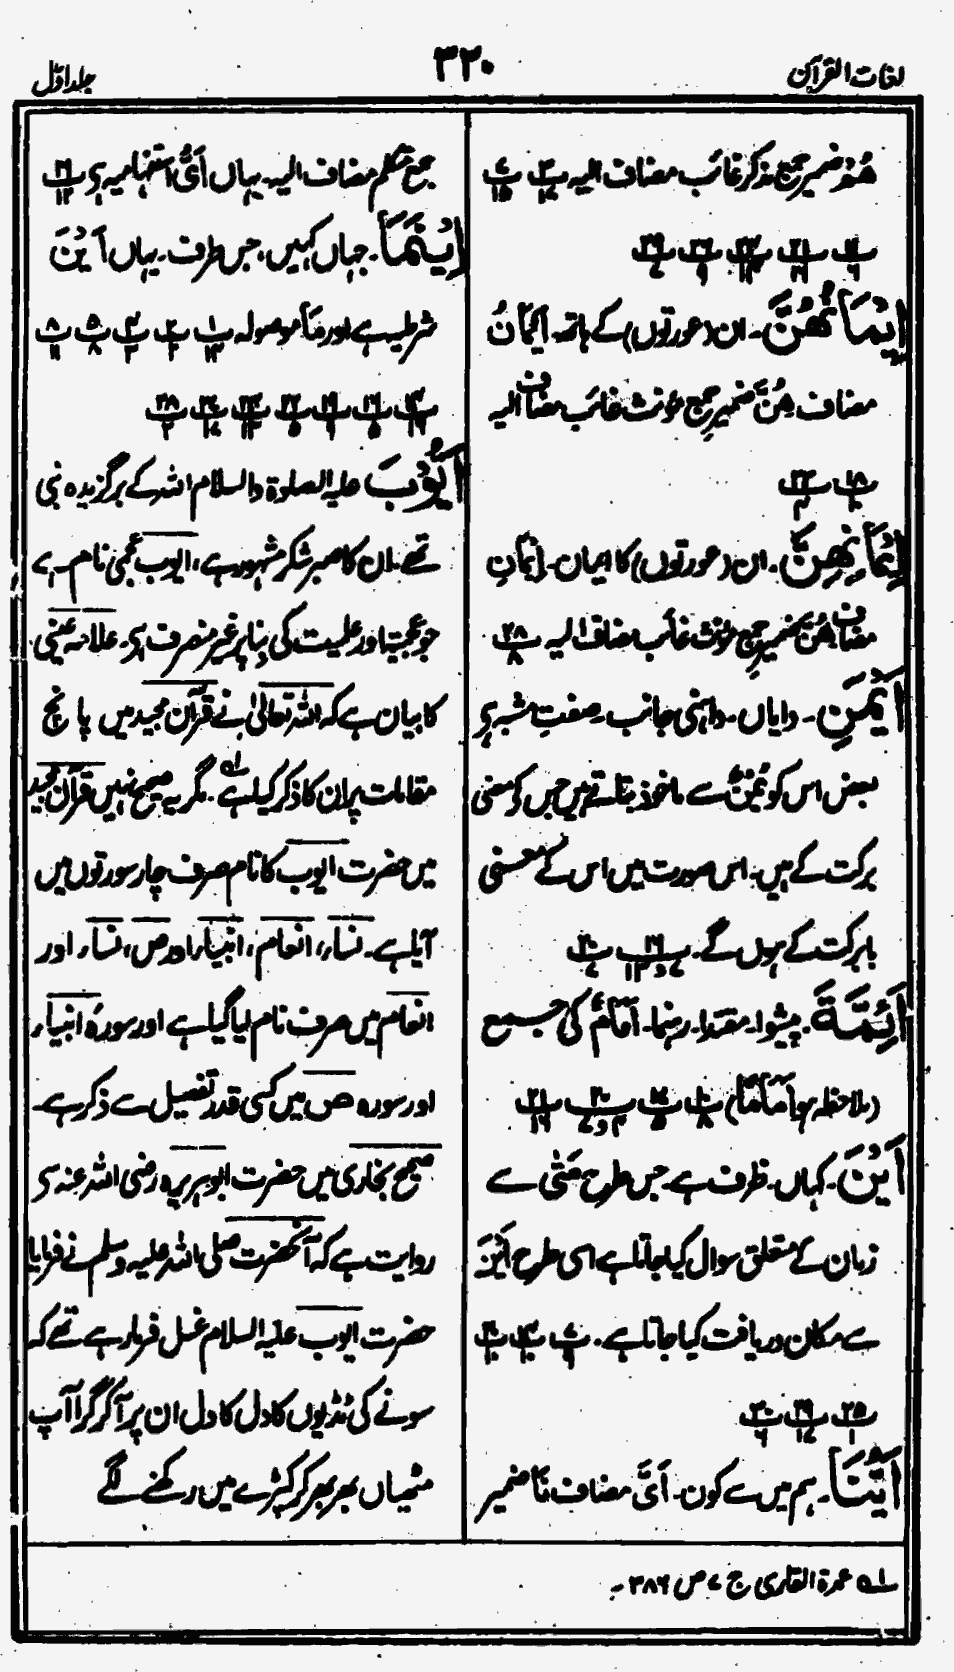 لغات القرآن
۳۲۰
جلد اوّل
هُمْ ضمیر جمع مذکر غائب مضاف الیہ
اَیْمَانُهُنَّ۔ ان (عورتوں) کے ہاتھ۔ اَیْمَانُ
مضاف هُنَّ ضمیر جمع مؤنث غائب مضاف الیہ
۱۸ ۲۲
اِیْمَانِهِنَّ۔ ان (عورتوں) کا ایمان۔ اِیْمَانِ
مضاف هُنَّ ضمیر جمع مؤنث غائب مضاف الیہ ۲۸/۸
اَیْمَنِ۔ دایاں۔ داہنی جانب۔ صفتِ مشبہ ہے
بعض اس کو یُمْنٌ سے ماخوذ بتاتے ہیں جس کے معنی
برکت کے ہیں۔ اس صورت میں اس کے معنی
بابرکت کے ہوں گے۔
اَئِمَّةً۔ پیشوا۔ مقتدا۔ رہنما۔ اِمَامٌ کی جمع
(ملاحظہ ہو اِمَامًا)
اَیْنَ۔ کہاں۔ ظرف ہے۔ جس طرح مَتٰی سے
زمان کے متعلق سوال کیا جاتا ہے اسی طرح اَیْنَ
سے مکان دریافت کیا جاتا ہے۔
۲۵/۱ ۲۹/۱۷ ۳۰/۶
اَیُّنَا۔ ہم میں سے کون۔ اَیُّ مضاف نَا ضمیر
جمع متکلم مضاف الیہ۔ یہاں اَیُّ استفہامیہ ہے
اَیْنَمَا۔ جہاں کہیں، جس طرف۔ یہاں اَیْنَ
شرطیہ ہے اور مَا موصولہ
اَیُّوْبَ علیہ الصلوۃ والسلام اللہ کے برگزیدہ نبی
تھے۔ ان کا صبر شکر مشہور ہے، ایوب عجمی نام ہے
جو عجمیت اور علمیت کی بنا پر غیر منصرف ہے۔ علامہ عینی
کا بیان ہے کہ اللہ تعالیٰ نے قرآن مجید میں پانچ
مقامات پر ان کا ذکر کیا ہے لہ مگر یہ صحیح نہیں قرآن مجید
میں حضرت ایوب کا نام صرف چار سورتوں میں
آیا ہے۔ نساء، انعام، انبیاء اور ص، نساء اور
انعام میں صرف نام لیا گیا ہے اور سورہ انبیاء
اور سورہ ص میں کسی قدر تفصیل سے ذکر ہے۔
صحیح بخاری میں حضرت ابوہریرہ رضی اللہ عنہ سے
روایت ہے کہ آنحضرت صلی اللہ علیہ وسلم نے فرمایا
حضرت ایوب علیہ السلام غسل فرما رہے تھے کہ
سونے کی ٹڈیوں کا دل کا دل ان پر آکر گرا آپ
مٹھیاں بھر بھر کر کپڑے میں رکھنے لگے
لہ عمدۃ القاری ج ۷ ص ۳۸۶۔